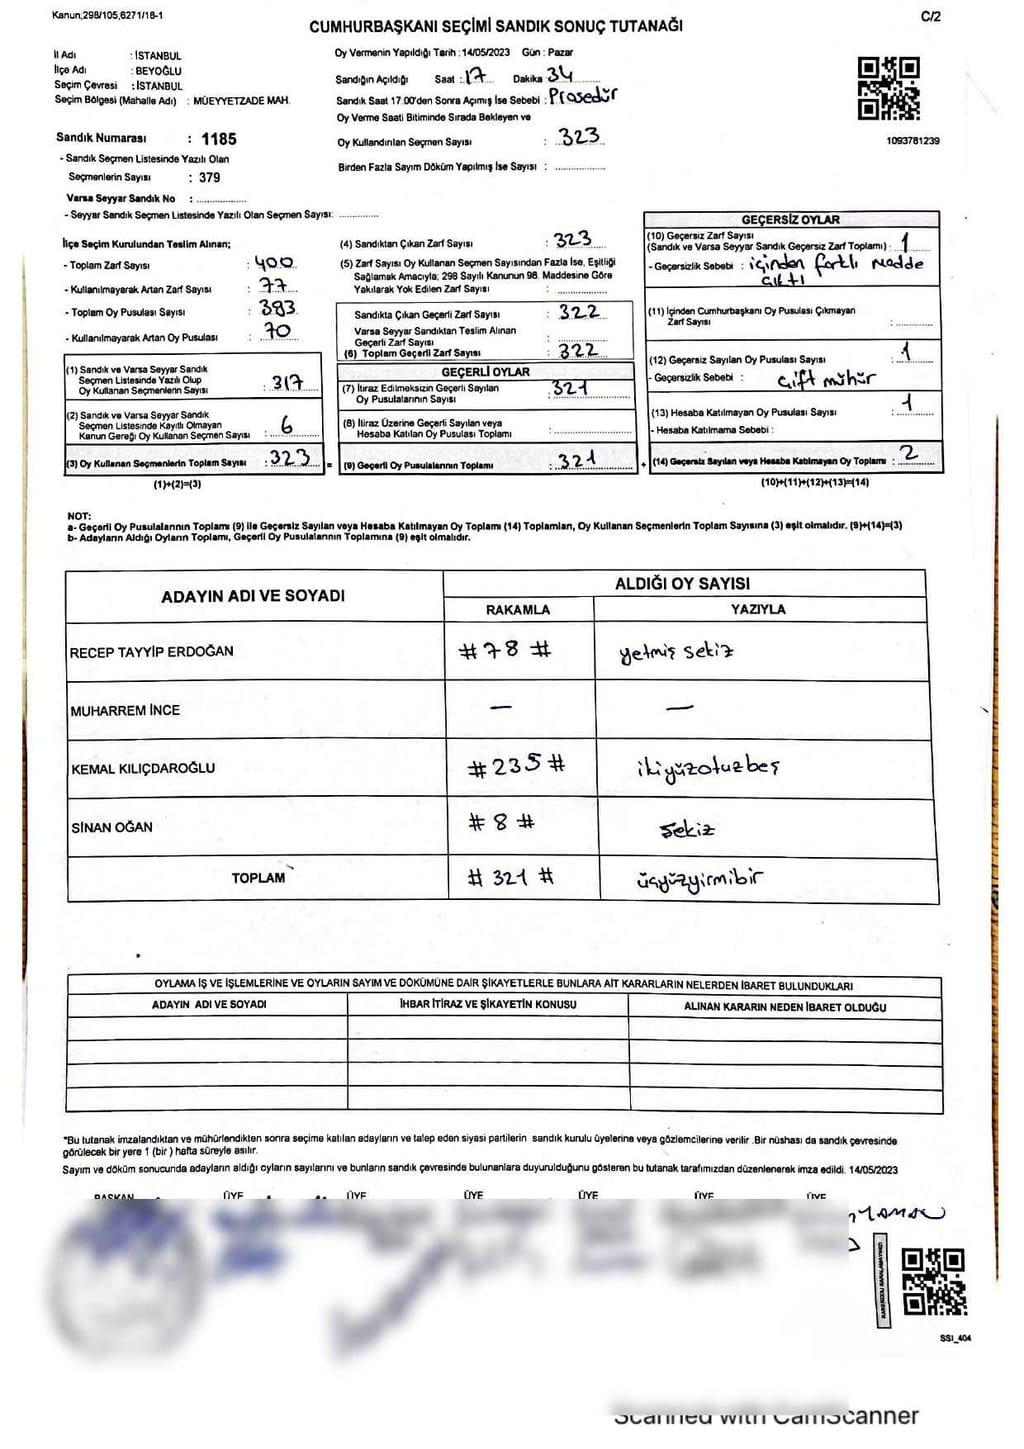 Kanun;298/105;6271/18-1
C/2
CUMHURBAŞKANI SEÇİMİ SANDIK SONUÇ TUTANAĞI
İl Adı : İSTANBUL
İlçe Adı : BEYOĞLU
Seçim Çevresi : İSTANBUL
Seçim Bölgesi (Mahalle Adı) : MÜEYYETZADE MAH.
Oy Vermenin Yapıldığı Tarih : 14/05/2023 Gün : Pazar
Sandığın Açıldığı Saat : 17 Dakika 34
Sandık Saat 17:00'den Sonra Açımış İse Sebebi : Prosedür
Oy Verme Saati Bitiminde Sırada Bekleyen ve
Oy Kullandırılan Seçmen Sayısı : 323
Birden Fazla Sayım Döküm Yapılmış İse Sayısı :
1093781239
Sandık Numarası : 1185
- Sandık Seçmen Listesinde Yazılı Olan
Seçmenlerin Sayısı : 379
Varsa Seyyar Sandık No :
- Seyyar Sandık Seçmen Listesinde Yazılı Olan Seçmen Sayısı:
İlçe Seçim Kurulundan Teslim Alınan;
- Toplam Zarf Sayısı : 400
- Kullanılmayarak Artan Zarf Sayısı : 77
- Toplam Oy Pusulası Sayısı : 393
- Kullanılmayarak Artan Oy Pusulası : 70
(1) Sandık ve Varsa Seyyar Sandık
Seçmen Listesinde Yazılı Olup
Oy Kullanan Seçmenlerin Sayısı : 317
(2) Sandık ve Varsa Seyyar Sandık
Seçmen Listesinde Kayıtlı Olmayan
Kanun Gereği Oy Kullanan Seçmen Sayısı : 6
(3) Oy Kullanan Seçmenlerin Toplam Sayısı : 323
(1)+(2)=(3)
(4) Sandıktan Çıkan Zarf Sayısı : 323
(5) Zarf Sayısı Oy Kullanan Seçmen Sayısından Fazla İse, Eşitliği
Sağlamak Amacıyla; 298 Sayılı Kanunun 98. Maddesine Göre
Yakılarak Yok Edilen Zarf Sayısı :
Sandıkta Çıkan Geçerli Zarf Sayısı : 322
Varsa Seyyar Sandıktan Teslim Alınan
Geçerli Zarf Sayısı :
(6) Toplam Geçerli Zarf Sayısı : 322
GEÇERLİ OYLAR
(7) İtiraz Edilmeksizin Geçerli Sayılan
Oy Pusulalarının Sayısı : 321
(8) İtiraz Üzerine Geçerli Sayılan veya
Hesaba Katılan Oy Pusulası Toplamı :
= (9) Geçerli Oy Pusulalarının Toplamı : 321
GEÇERSİZ OYLAR
(10) Geçersiz Zarf Sayısı
(Sandık ve Varsa Seyyar Sandık Geçersiz Zarf Toplamı) : 1
- Geçersizlik Sebebi : içinden farklı madde
çıktı
(11) İçinden Cumhurbaşkanı Oy Pusulası Çıkmayan
Zarf Sayısı :
(12) Geçersiz Sayılan Oy Pusulası Sayısı : 1
- Geçersizlik Sebebi : Çift mühür
(13) Hesaba Katılmayan Oy Pusulası Sayısı : 1
- Hesaba Katılmama Sebebi :
+ (14) Geçersiz Sayılan veya Hesaba Katılmayan Oy Toplamı : 2
(10)+(11)+(12)+(13)=(14)
NOT:
a- Geçerli Oy Pusulalarının Toplamı (9) ile Geçersiz Sayılan veya Hesaba Katılmayan Oy Toplamı (14) Toplamları, Oy Kullanan Seçmenlerin Toplam Sayısına (3) eşit olmalıdır. (9)+(14)=(3)
b- Adayların Aldığı Oyların Toplamı, Geçerli Oy Pusulalarının Toplamına (9) eşit olmalıdır.
ADAYIN ADI VE SOYADI
ALDIĞI OY SAYISI
RAKAMLA YAZIYLA
RECEP TAYYİP ERDOĞAN #78# yetmiş sekiz
MUHARREM İNCE — —
KEMAL KILIÇDAROĞLU #235# ikiyüzotuzbeş
SİNAN OĞAN #8# sekiz
TOPLAM #321# üçyüzyirmibir
OYLAMA İŞ VE İŞLEMLERİNE VE OYLARIN SAYIM VE DÖKÜMÜNE DAİR ŞİKAYETLERLE BUNLARA AİT KARARLARIN NELERDEN İBARET BULUNDUKLARI
ADAYIN ADI VE SOYADI İHBAR İTİRAZ VE ŞİKAYETİN KONUSU ALINAN KARARIN NEDEN İBARET OLDUĞU
*Bu tutanak imzalandıktan ve mühürlendikten sonra seçime katılan adayların ve talep eden siyasi partilerin sandık kurulu üyelerine veya gözlemcilerine verilir .Bir nüshası da sandık çevresinde
görülecek bir yere 1 (bir ) hafta süreyle asılır.
Sayım ve döküm sonucunda adayların aldığı oyların sayılarını ve bunların sandık çevresinde bulunanlara duyurulduğunu gösteren bu tutanak tarafımızdan düzenlenerek imza edildi. 14/05/2023
BAŞKAN ÜYE ÜYE ÜYE ÜYE ÜYE ÜYE
SSI_404
Scanned with CamScanner